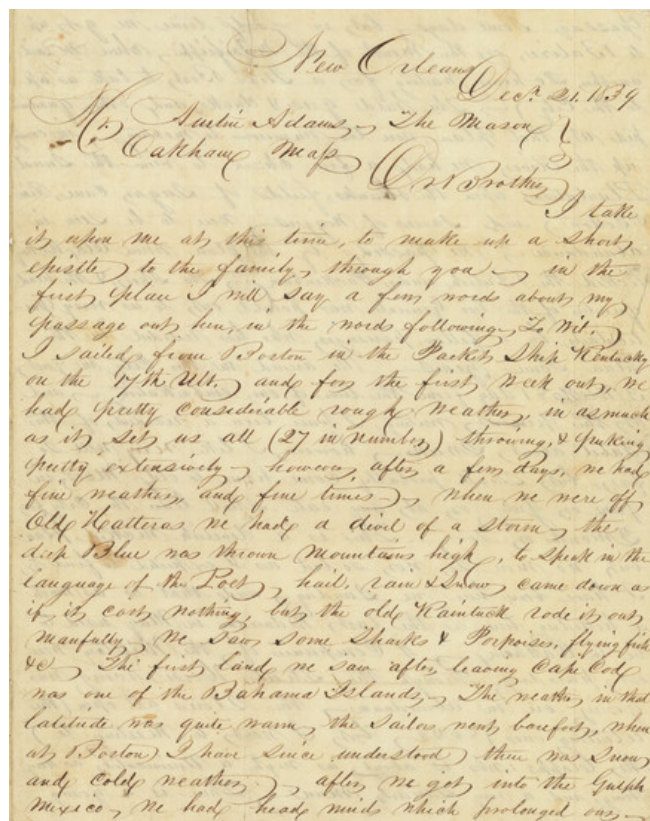 New Orleans
Decr. 21. 1839
Mr. Austin Adams, The Mason
Oakham Mass
Dr Brother
I take
it upon me at this time, to make up a short
epistle to the family, through you – in the
first place I will say a few words about my
passage out here, in the words following, To Wit.
I sailed from Boston in the Packet Ship Kentucky
on the 17th Ult. and for the first week out, we
had pretty considerable rough weather, in asmuch
as it set us all (27 in number) throwing, & puking
pretty extensively – however after a few days, we had
fine weather, and fine times – when we were off
Old Hatteras we had a divel of a storm – the
deep Blue was thrown mountains high, to speak in the
language of the Poet, hail, rain & Snow came down as
if it cost nothing, but the old Kaintuck rode it out
manfully – we saw some Sharks & Porpoises, flying fish
&c – The first land we saw after leaving Cape Cod
was one of the Bahama Islands, – The weather in that
latitude was quite warm, the sailors went barefoot, when
at Boston I have since understood there was Snow
and cold weather – after we got into the Gulph
Mexico, we had head winds which prolonged our –